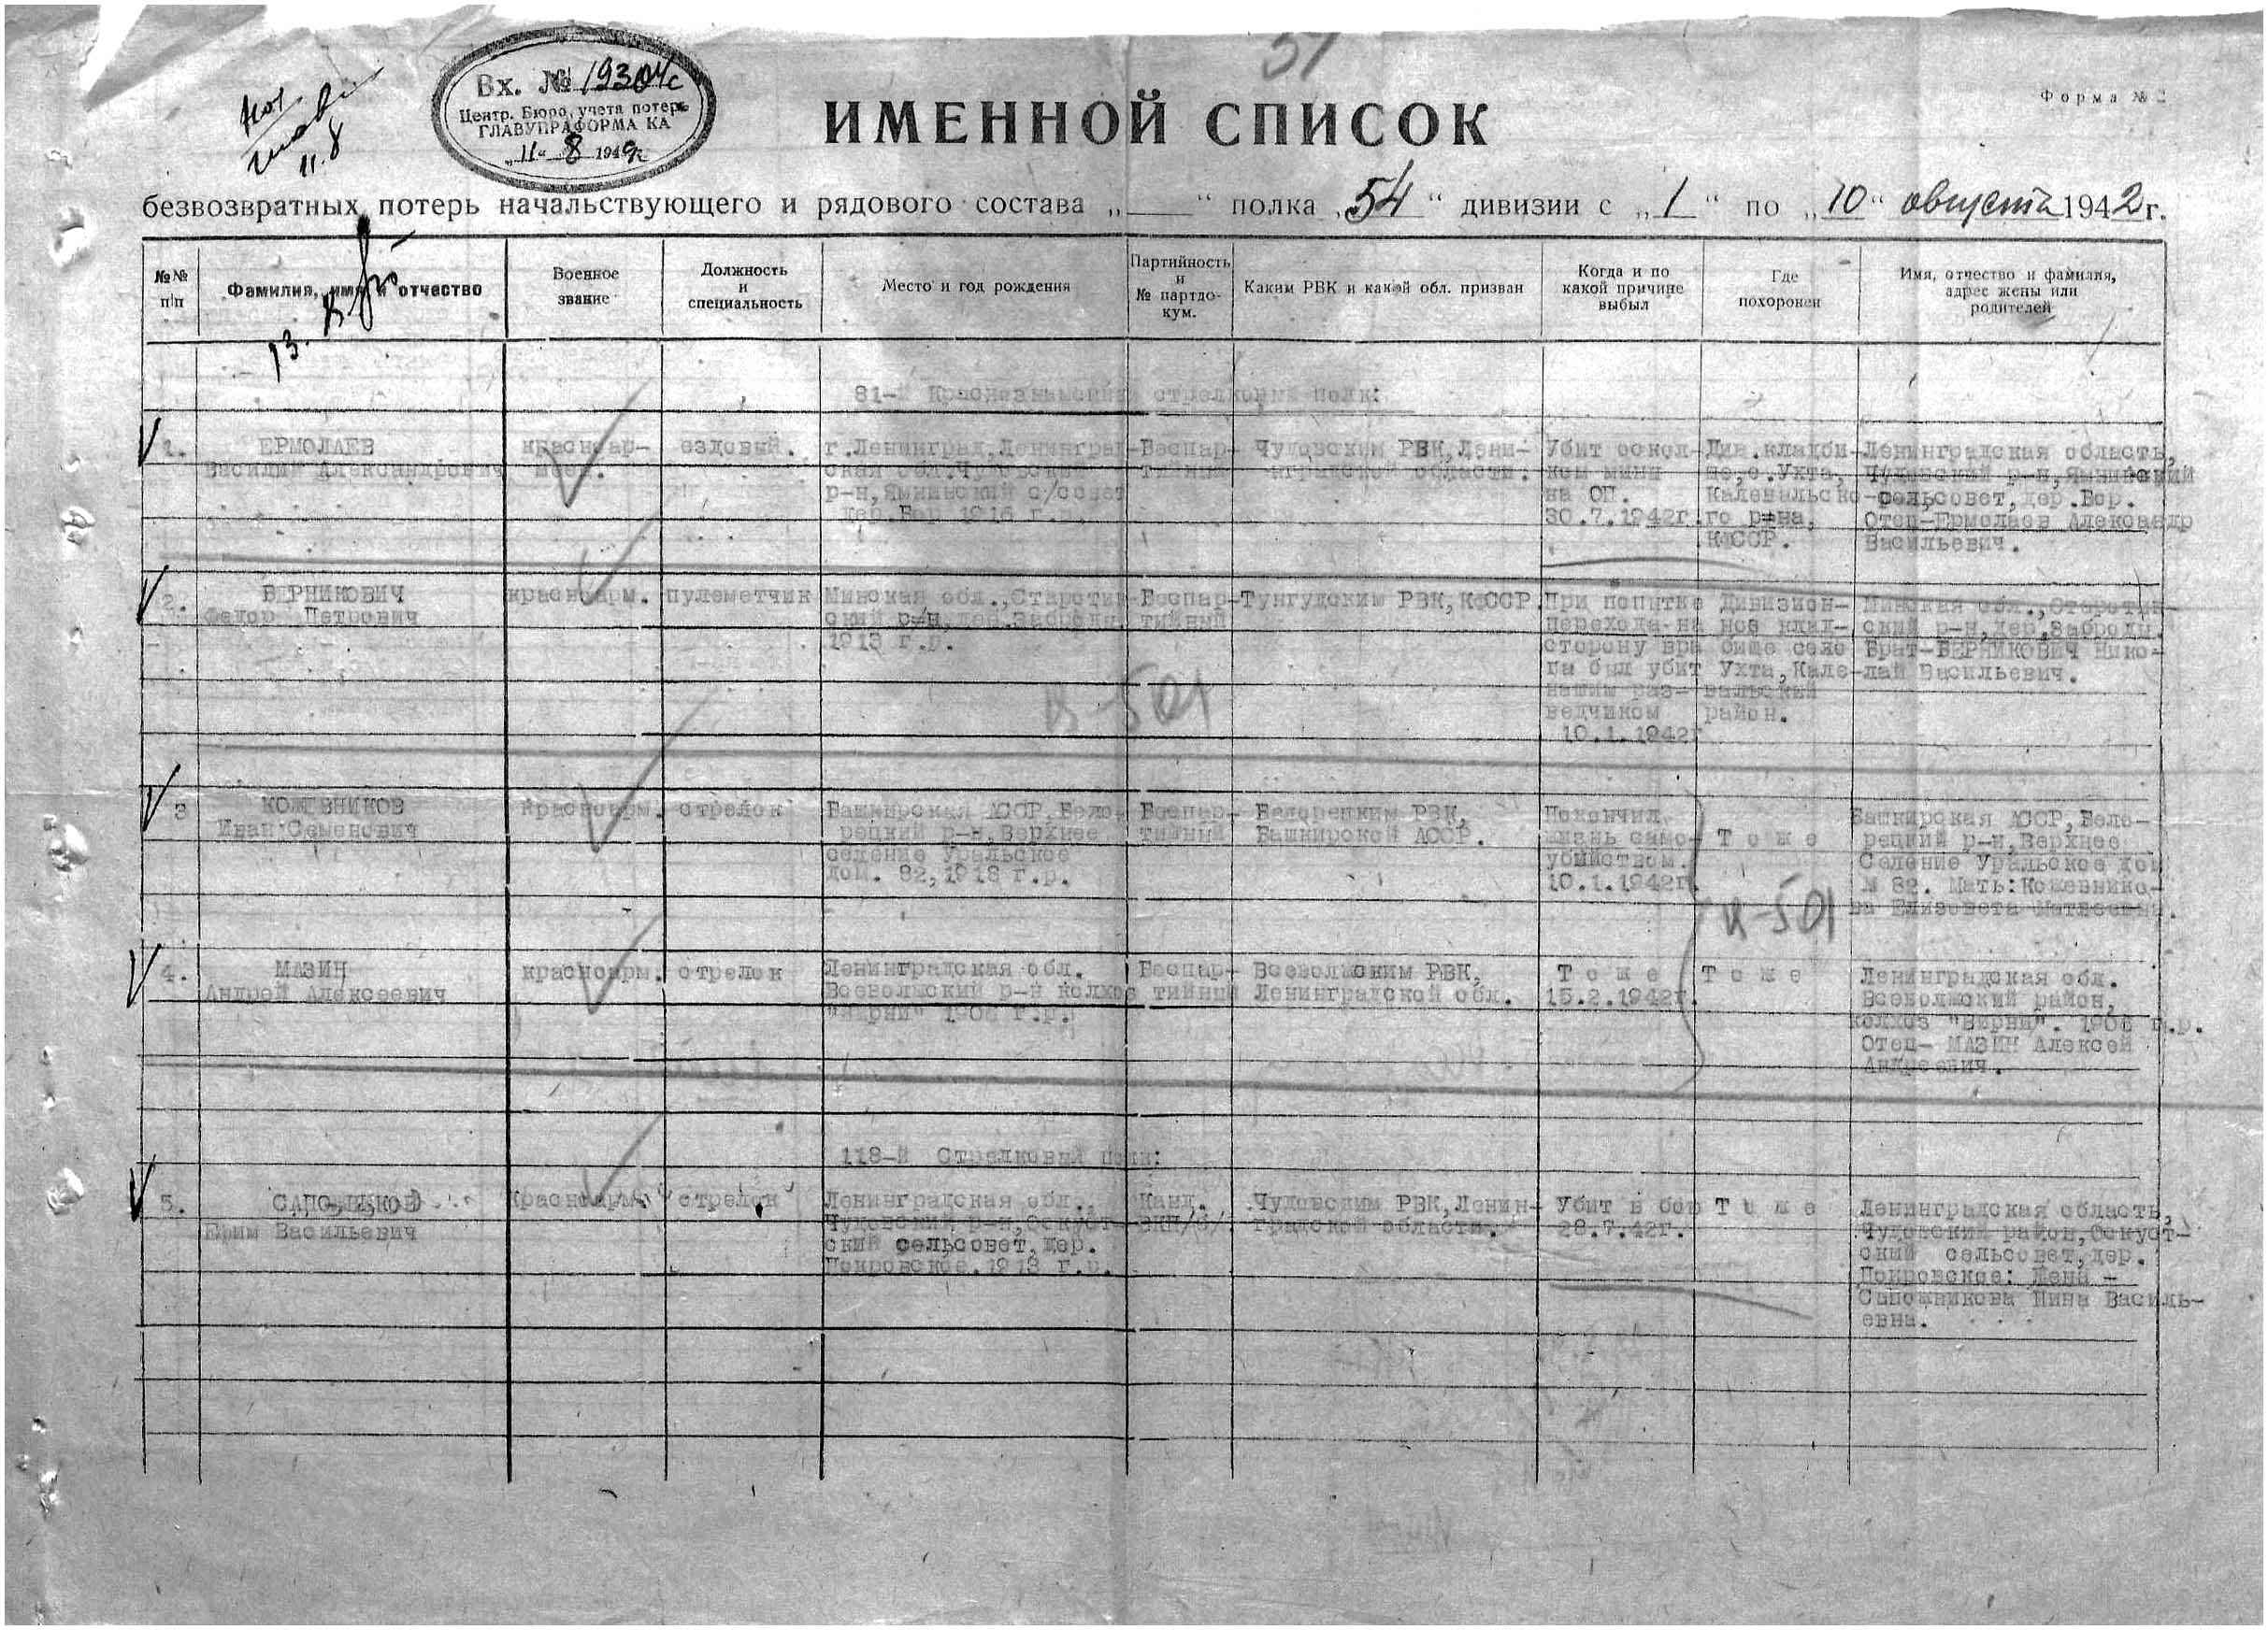 57
Форма № 2
Вх. № 19304с
Центр. Бюро учета потерь
ГЛАВУПРАФОРМА КА
„11" 8 1942г.
11.8
ИМЕННОЙ СПИСОК
безвозвратных потерь начальствующего и рядового состава „___" полка „54" дивизии с „1" по „10" августа 1942г.
№№ п/п
Фамилия, имя и отчество
Военное звание
Должность и специальность
Место и год рождения
Партийность и № партдокум.
Каким РВК и какой обл. призван
Когда и по какой причине выбыл
Где похоронен
Имя, отчество и фамилия, адрес жены или родителей
13.
81-й Краснознаменный стрелковый полк:
1.
ЕРМОЛАЕВ
Василий Александрович
красноар-
меец.
ездовый.
г.Ленинград,Ленинград-
ская обл.Чудовский
р-н, с/совет
дер.Бор 1916 г.р.
Беспар-
тийный
Чудовским РВК,Лени-
нградской области.
Убит оскол-
ком мины
на ОП.
30.7.1942г.
Див.кладби-
ще,с.Ухта,
Калевальско-
го р-на,
КФССР.
Ленинградская область,
Чудовский р-н,
сельсовет,дер.Бор.
Отец-Ермолаев Александр
Васильевич.
2.
ВЕРНИКОВИЧ
Федор Петрович
красноарм.
пулеметчик
Минская обл.,
ский р-н,дер.Заброди
1913 г.р.
Беспар-
тийный
Тунгудским РВК,КФССР.
При попытке
перехода на
сторону вра
га был убит
нашим раз-
ведчиком
10.1.1942г
Дивизион-
ное клад-
бище село
Ухта,Кале-
вальский
район.
Минская обл.,
ский р-н,дер.Заброды.
Брат-ВЕРНИКОВИЧ Нико-
лай Васильевич.
и-501
3
КОЖЕВНИКОВ
Иван Семенович
Красноарм.
стрелок
Башкирская АССР,Бело-
рецкий р-н,Верхнее
селение Уральское
дом. 82,1918 г.р.
Беспар-
тийный
Белорецким РВК,
Башкирской АССР.
Покончил
жизнь само-
убийством.
10.1.1942г.
Т о ж е
Башкирская АССР,Бело-
рецкий р-н,Верхнее
Селение Уральское дом
№ 82. Мать:Кожевнико-
ва Елизовета
и-501
4.
МАЗИН
Андрей Алексеевич
красноарм.
стрелок
Ленинградская обл.
Всеволжский р-н колхоз
1908 г.р.
Беспар-
тийный
Всеволжским РВК,
Ленинградской обл.
Т о ж е
15.2.1942г.
Т о ж е
Ленинградская обл.
Всеволжский район,
колхоз 1908 г.р.
Отец- МАЗИН Алексей
Андреевич.
118-й Стрелковый полк:
5.
САПОЖНИКОВ
Ефим Васильевич
Красноарм.
стрелок
Ленинградская обл.,
Чудовский р-н,Оскуст-
ский сельсовет,дер.
Покровское.1913 г.р.
Канд.
ВКП/б/
Чудовским РВК,Ленин-
градской области.
Убит в бою
28.7.42г.
Т о ж е
Ленинградская область,
Чудовский район,Оскуст-
ский сельсовет,дер.
Покровское: Жена -
Сапожникова Нина Василь-
евна.